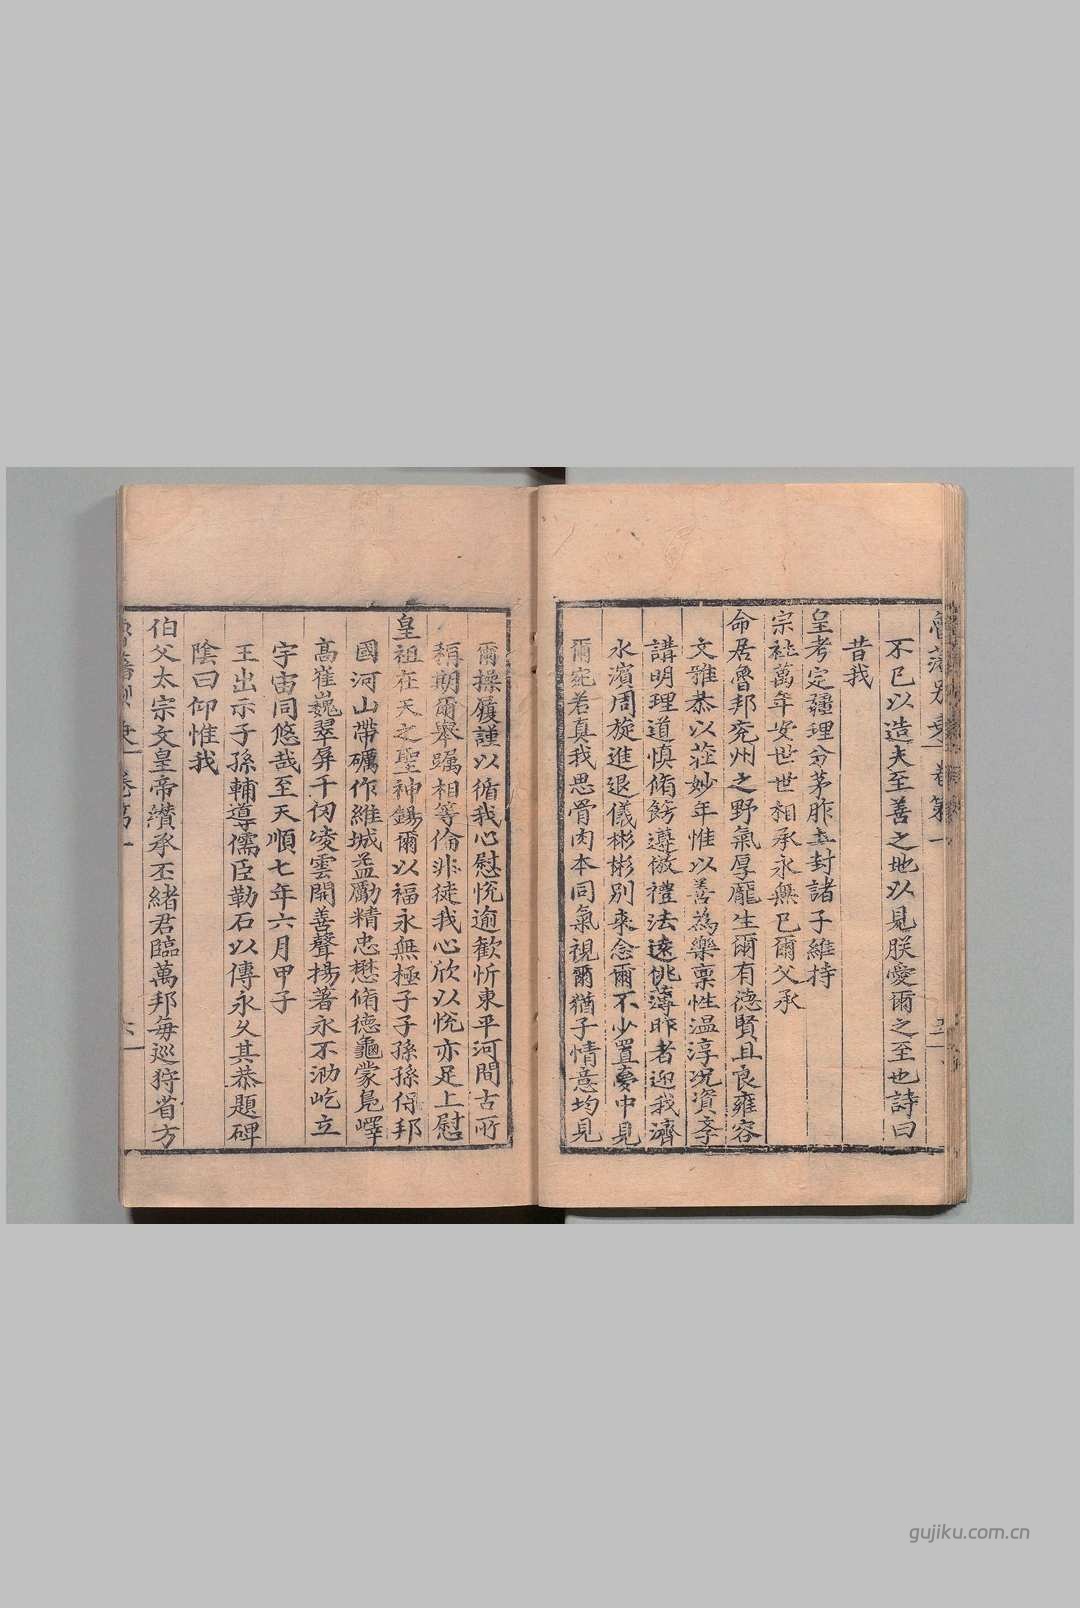 魯藩別乗 卷第一 五
不已以造夫至善之地以見朕愛爾之至也詩曰
昔我
皇考定疆理分茅胙土封諸子維持
宗祉萬年安世世相承永無已爾父承
命居魯邦兖州之野氣厚龐生爾有德賢且良雍容
文雅恭以莊妙年惟以善為樂稟性温淳况資孝
講明理道慎脩飭遵倣禮法遠佻薄昨者迎我濟
水濱周旋進退儀彬彬别來念爾不少置夢中見
爾宛若真我思骨肉本同氣視爾猶子情意均見
爾操履謹以循我心慰恱逾歡忻東平河間古所
稱期爾舉躅相等倫非徒我心欣以恱亦足上慰
皇祖在天之聖神錫爾以福永無極子子孫孫保邦
國河山帶礪作維城益勵精忠懋脩德龜蒙鳧嶧
高崔巍翠屏千仞凌雲開善聲揚著永不泐屹立
宇宙同悠哉至天順七年六月甲子
王出示子孫輔導儒臣勒石以傳永久其恭題碑
陰曰仰惟我
伯父太宗文皇帝纘承丕緒君臨萬邦每巡狩省方
魯藩別乗 卷第一 六
gujiku.com.cn